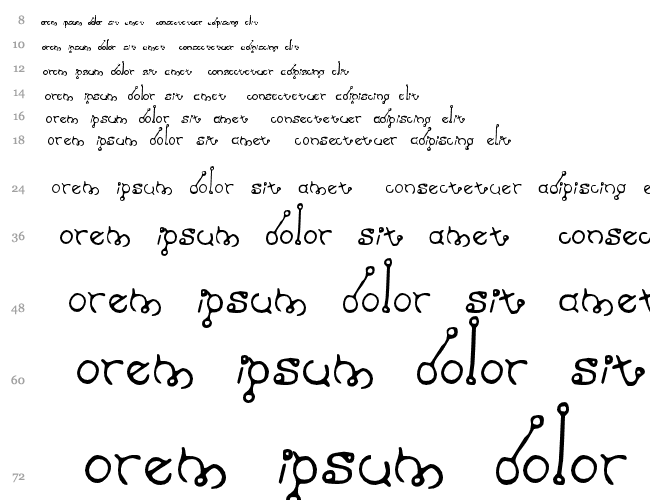 8 orem ipsum dolor sit amet consectetuer adipiscing elit
10 orem ipsum dolor sit amet consectetuer adipiscing elit
12 orem ipsum dolor sit amet consectetuer adipiscing elit
14 orem ipsum dolor sit amet consectetuer adipiscing elit
16 orem ipsum dolor sit amet consectetuer adipiscing elit
18 orem ipsum dolor sit amet consectetuer adipiscing elit
24 orem ipsum dolor sit amet consectetuer adipiscing e
36 orem ipsum dolor sit amet consec
48 orem ipsum dolor sit amet
60 orem ipsum dolor sit
72 orem ipsum dolor